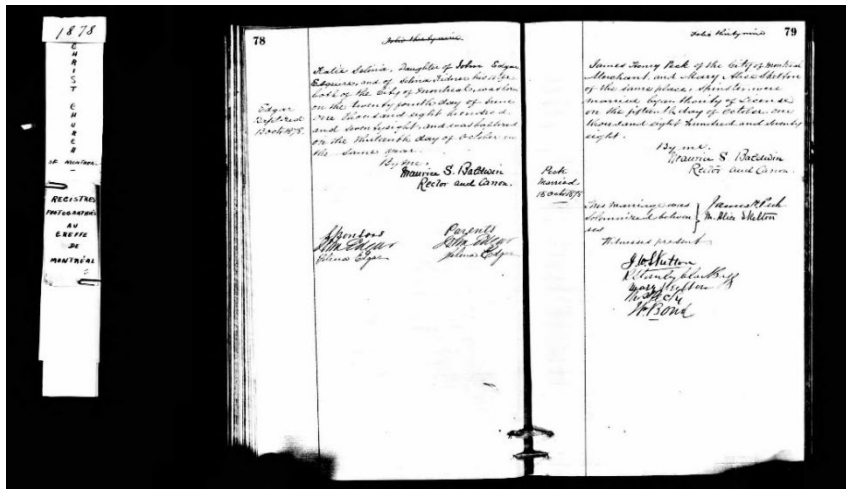 1878
CHRIST CHURCH
OF MONTREAL
REGISTRES
PHOTOGRAPHIÉS
AU
GREFFE
DE
MONTRÉAL
78
Folio thirty nine
Edgar
Baptized
13 Oct 1878.
Katie Selina, Daughter of John Edgar
Esquire, and of Selina his wife
both of the City of Montreal, was born
on the twenty fourth day of June
one thousand eight hundred
and seventy eight, and was baptized
on the thirteenth day of October in
the same year.
By me,
Maurice S. Baldwin
Rector and Canon.
Sponsors
John Edgar
Selina Edgar
Parents
John Edgar
Selina Edgar
Folio thirty nine
79
Peck
Married
15 Oct 1878
James Henry Peck of the City of Montreal
Merchant, and Mary Alice Skelton
of the same place, Spinster, were
married by authority of License
on the fifteenth day of October, one
thousand eight hundred and seventy
eight.
By me,
Maurice S. Baldwin
Rector and Canon.
This marriage was
Solemnized between
us
James H. Peck
M. Alice Skelton
Witnesses present
J W Skelton
Mary Skelton
W. Bond